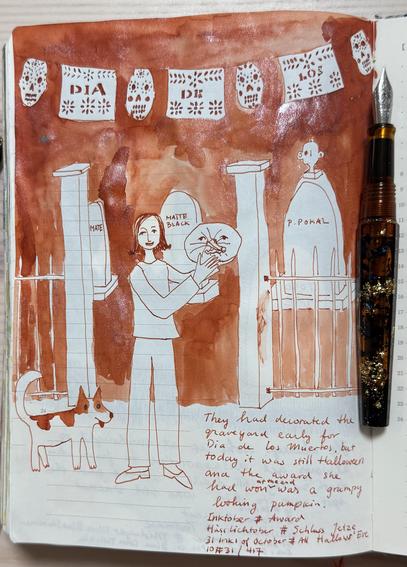 DIA
DE
LOS
MATE
MATTE
BLACK
P. POKAL
They had decorated the
graveyard early for
Dia de los Muertos, but
today it was still Halloween
and the award she
had won at the end was a grumpy
looking pumpkin.
Inktober # Award
# Schluss Jetze
31 inks of October # All Hallow's Eve
10#31 / 417